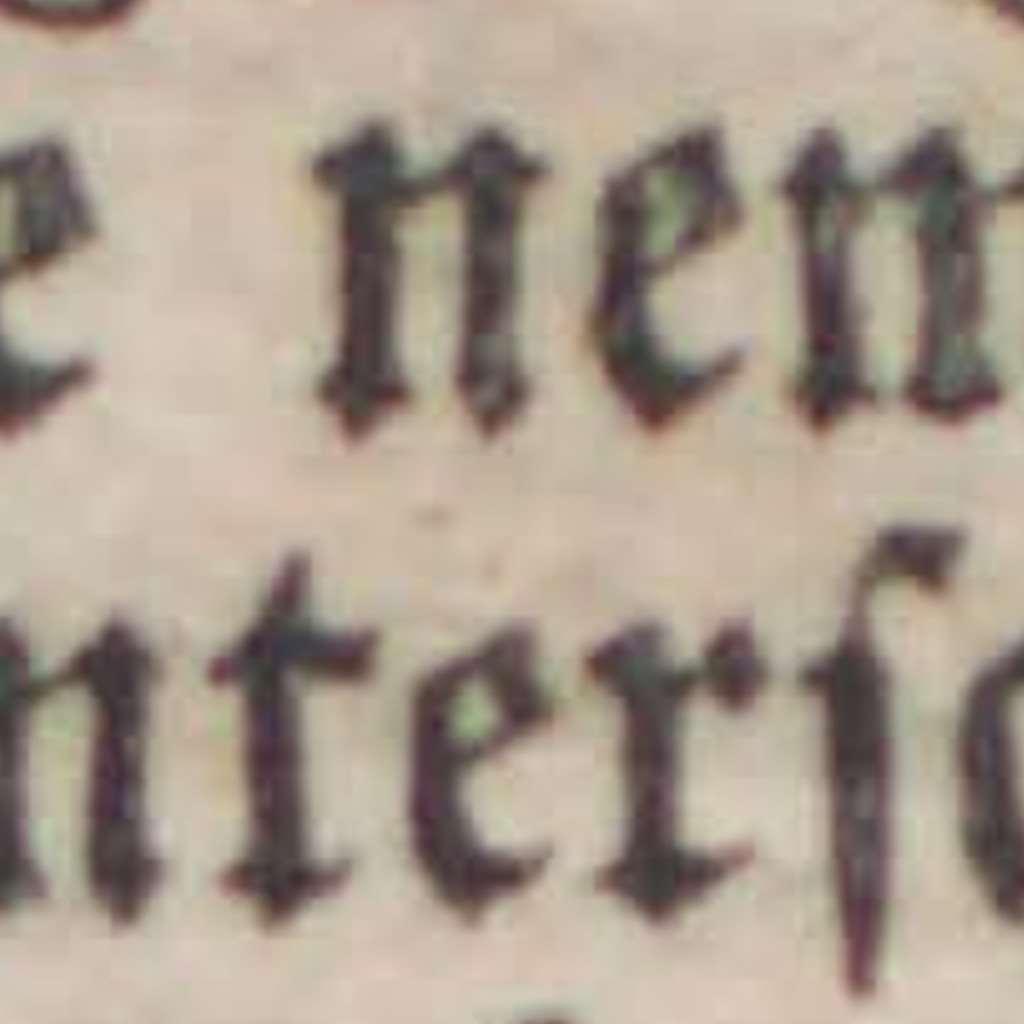 e nem
nterſo